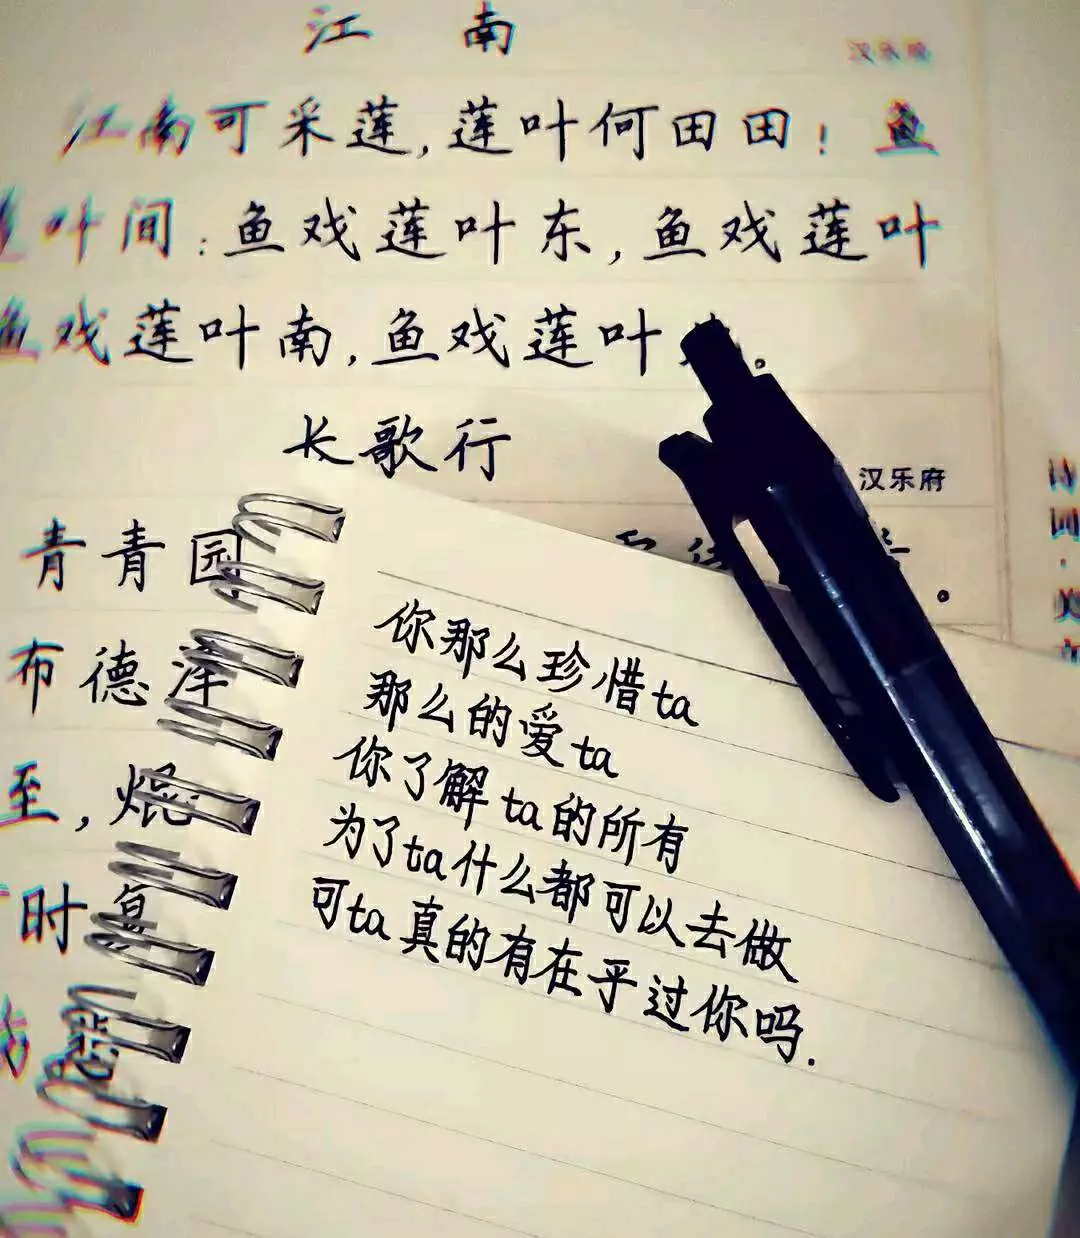 江南
汉乐府
江南可采莲,莲叶何田田!鱼
叶间:鱼戏莲叶东,鱼戏莲叶
鱼戏莲叶南,鱼戏莲叶。
长歌行
汉乐府
青青园
布德泽
至,焜
时
你那么珍惜ta
那么的爱ta
你了解ta的所有
为了ta什么都可以去做
可ta真的有在乎过你吗.